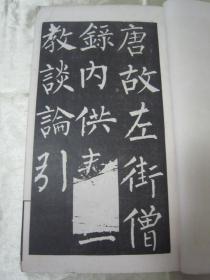 唐故左街僧
錄內供
教談論引